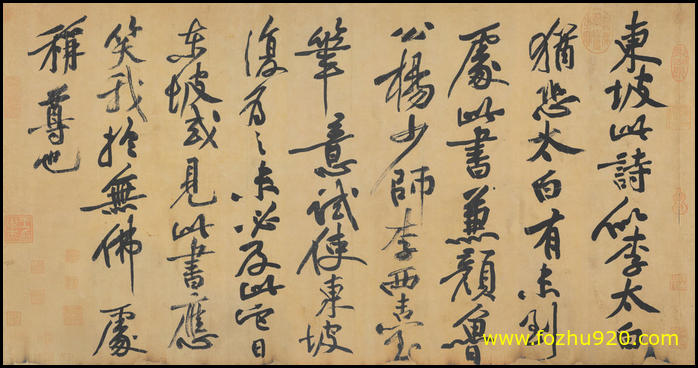 東坡此詩似李太白
猶恐太白有未到
處此書兼顏魯
公楊少師李西臺
筆意試使東坡
復為之未必及此它日
東坡或見此書應
笑我於無佛處
稱尊也
www.fozhu920.com